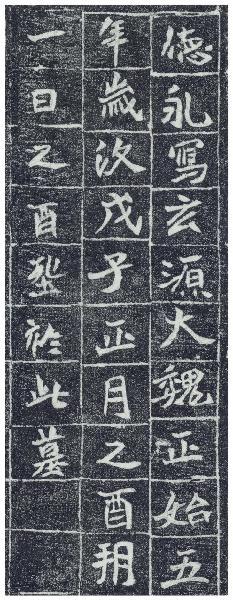 德永寫玄源大魏正始五
年歲次戊子正月乙酉朔
一日乙酉塟於此墓